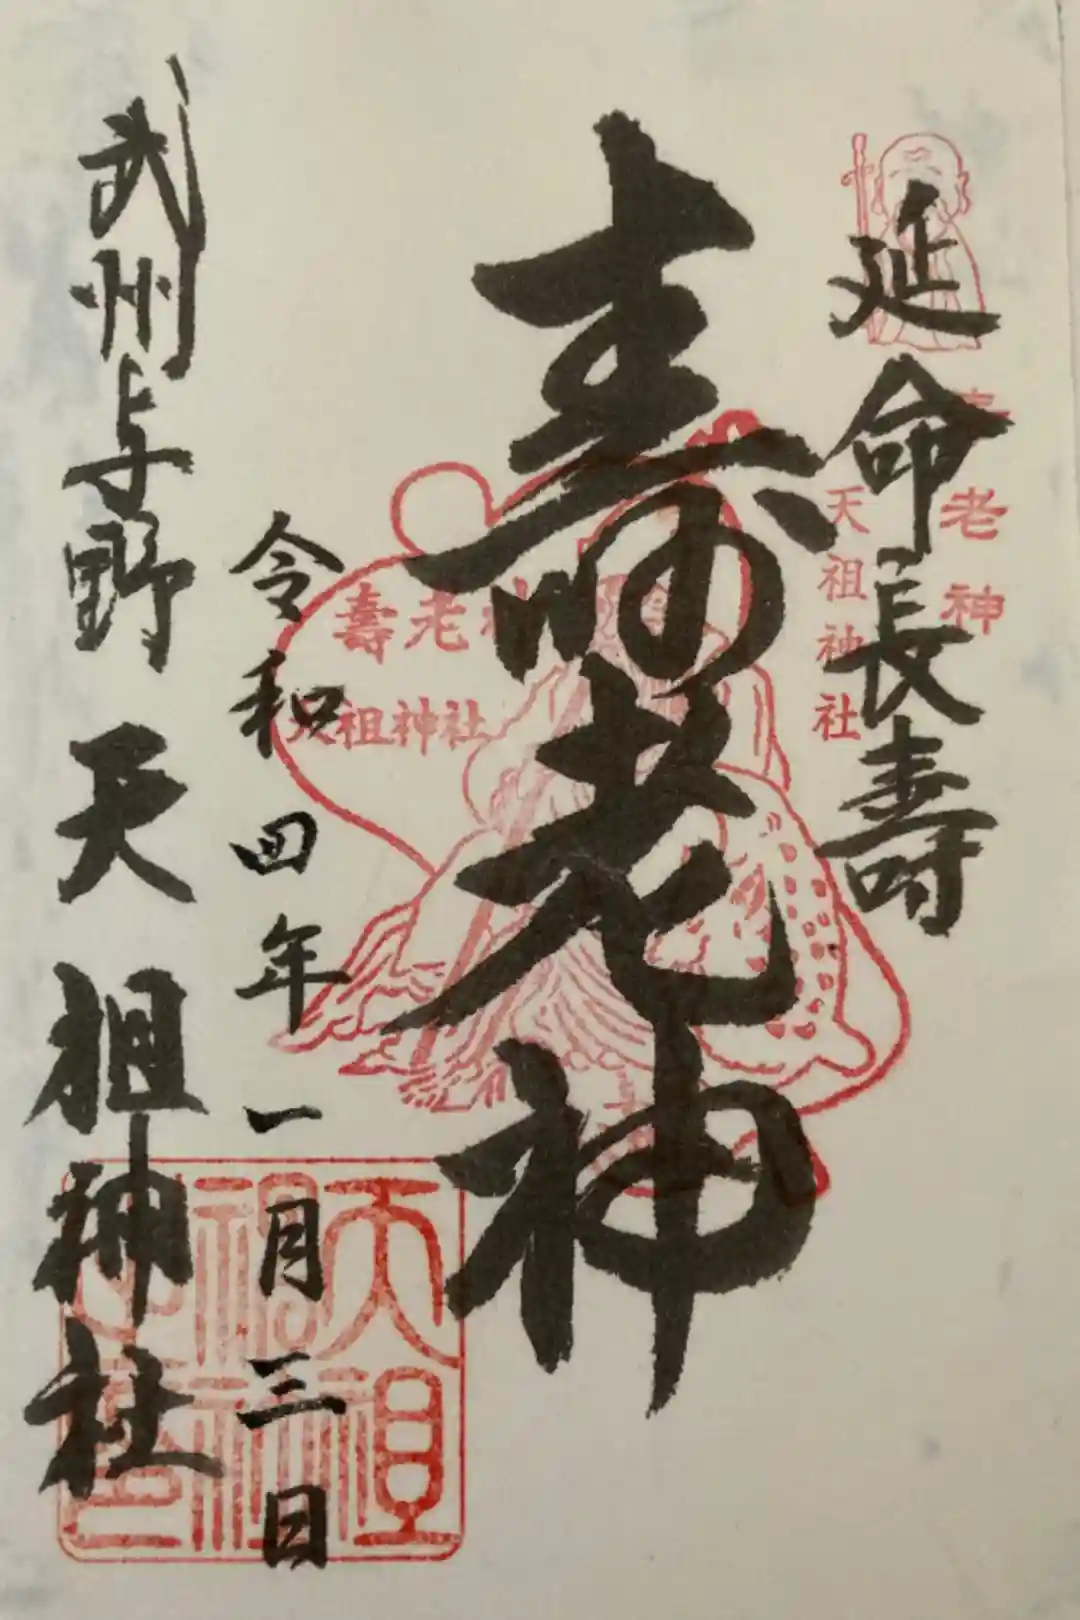 延命長壽
壽老神
天祖神社
壽老神
壽老神
天祖神社
令和四年一月三日
武州与野
天祖神社
天祖
神社
之印